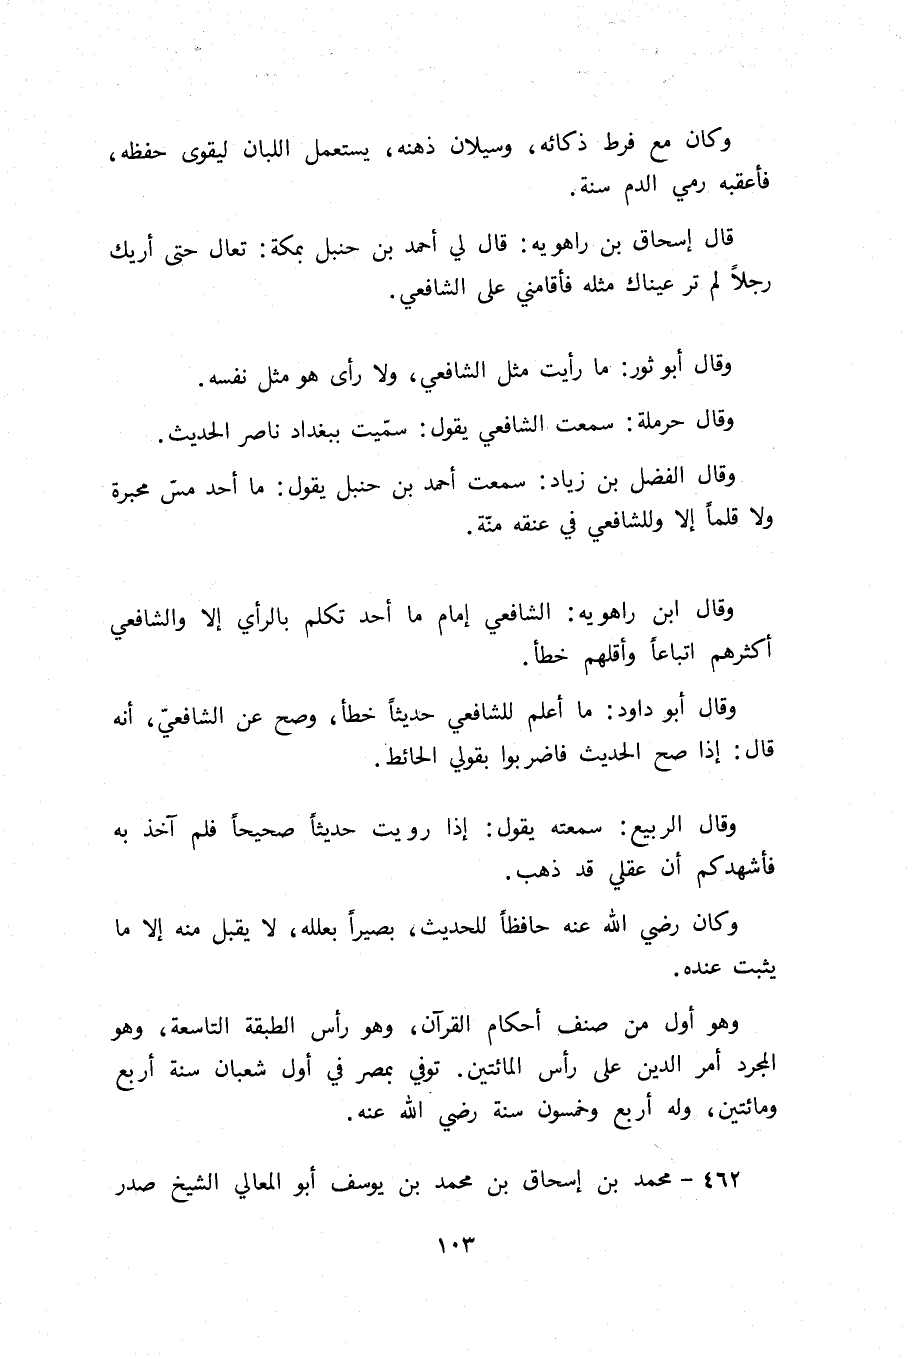 وكان مع فرط ذكائه، وسيلان ذهنه، يستعمل اللبان ليقوى حفظه،
فأعقبه رمي الدم سنة.
قال إسحاق بن راهويه: قال لي أحمد بن حنبل بمكة: تعال حتى أريك
رجلاً لم تر عيناك مثله فأقامني على الشافعي.
وقال أبو ثور: ما رأيت مثل الشافعي، ولا رأى هو مثل نفسه.
وقال حرملة: سمعت الشافعي يقول: سمّيت ببغداد ناصر الحديث.
وقال الفضل بن زياد: سمعت أحمد بن حنبل يقول: ما أحد مسّ محبرة
ولا قلماً إلا وللشافعي في عنقه منّة.
وقال ابن راهويه: الشافعي إمام ما أحد تكلم بالرأي إلا والشافعي
أكثرهم اتباعاً وأقلهم خطأ.
وقال أبو داود: ما أعلم للشافعي حديثاً خطأ، وصح عن الشافعيّ، أنه
قال: إذا صح الحديث فاضربوا بقولي الحائط.
وقال الربيع: سمعته يقول: إذا رويت حديثاً صحيحاً فلم آخذ به
فأشهدكم أن عقلي قد ذهب.
وكان رضي الله عنه حافظاً للحديث، بصيراً بعلله، لا يقبل منه إلا ما
يثبت عنده.
وهو أول من صنف أحكام القرآن، وهو رأس الطبقة التاسعة، وهو
المجرد أمر الدين على رأس المائتين. توفي بمصر في أول شعبان سنة أربع
ومائتين، وله أربع وخمسون سنة رضي الله عنه.
٤٦٢ - محمد بن إسحاق بن محمد بن يوسف أبو المعالي الشيخ صدر
١٠٣